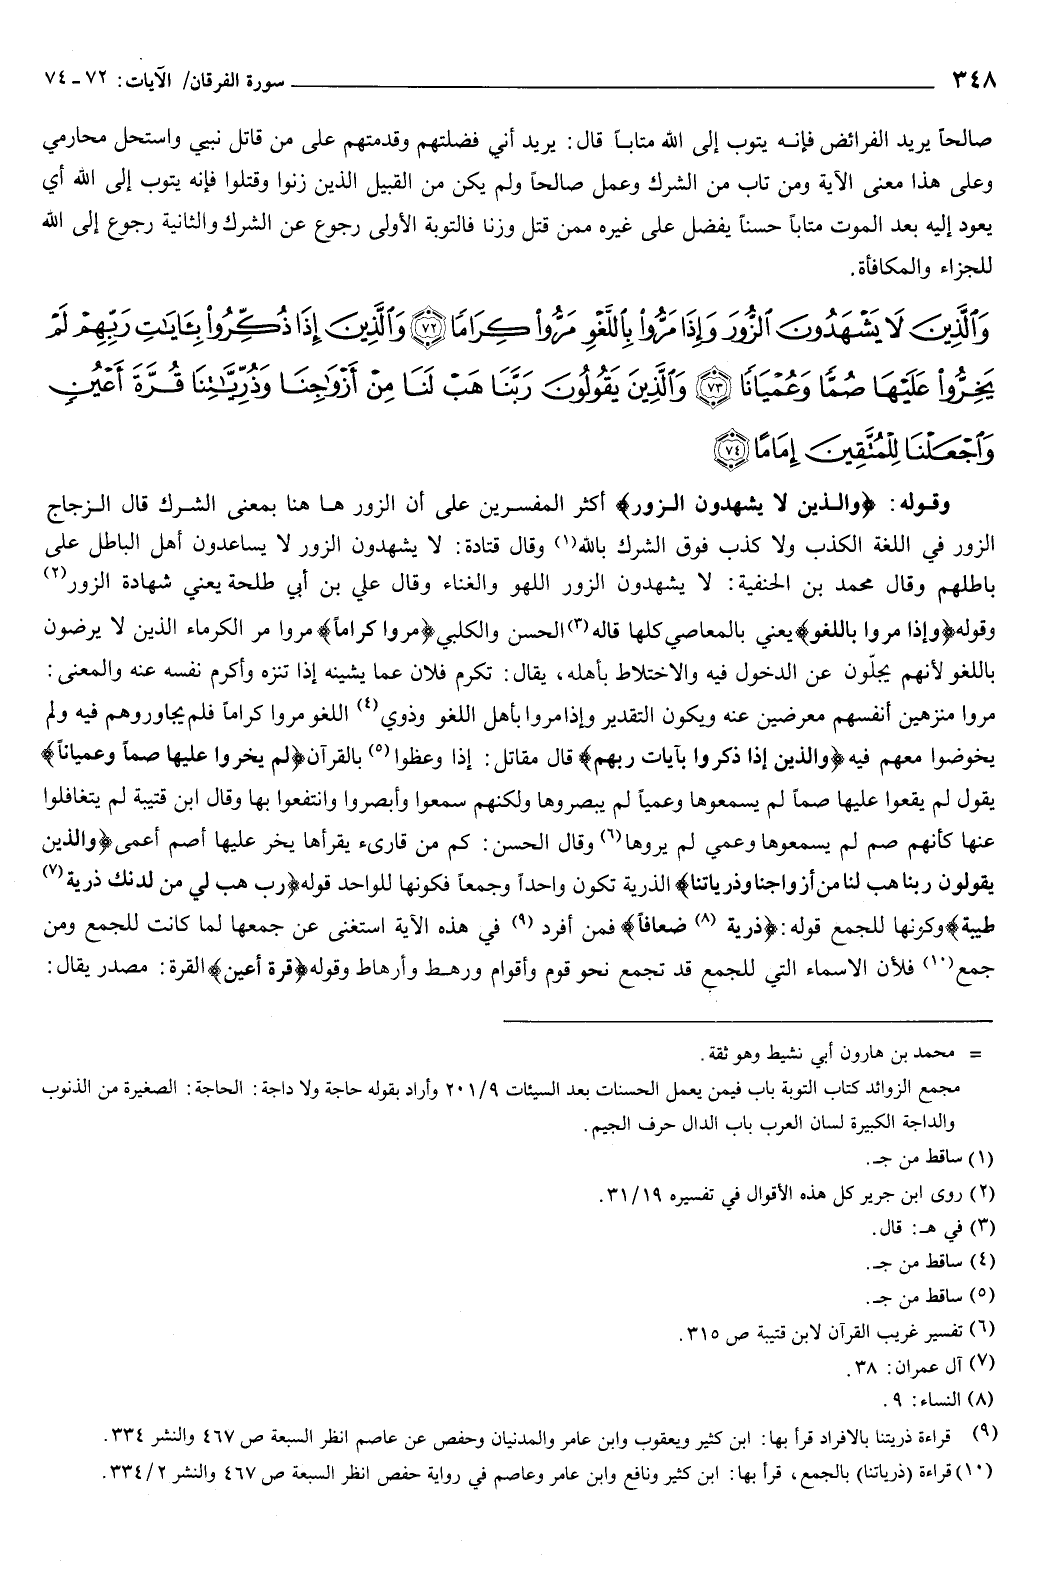 ٣٤٨ سورة الفرقان/ الآيات: ٧٢ - ٧٤
صالحاً يريد الفرائض فإنـه يتوب إلى الله متابـاً قال: يريد أني فضلتهم وقدمتهم على من قاتل نبيي واستحل محارمي
وعلى هذا معنى الآية ومن تاب من الشرك وعمل صالحاً ولم يكن من القبيل الذين زنوا وقتلوا فإنه يتوب إلى الله أي
يعود إليه بعد الموت متاباً حسناً يفضل على غيره ممن قتل وزنا فالتوبة الأولى رجوع عن الشرك والثانية رجوع إلى الله
للجزاء والمكافأة.
وَٱلَّذِينَ لَا يَشْهَدُونَ ٱلزُّورَ وَإِذَا مَرُّواْ بِٱللَّغْوِ مَرُّواْ كِرَامًا ﴿٧٢﴾ وَٱلَّذِينَ إِذَا ذُكِّرُواْ بِـَٔايَٰتِ رَبِّهِمْ لَمْ
يَخِرُّواْ عَلَيْهَا صُمًّا وَعُمْيَانًا ﴿٧٣﴾ وَٱلَّذِينَ يَقُولُونَ رَبَّنَا هَبْ لَنَا مِنْ أَزْوَٰجِنَا وَذُرِّيَّٰتِنَا قُرَّةَ أَعْيُنٍ
وَٱجْعَلْنَا لِلْمُتَّقِينَ إِمَامًا ﴿٧٤﴾
وقـوله: ﴿والـذين لا يشهدون الـزور﴾ أكثر المفسـرين على أن الزور هـا هنا بمعنى الشـرك قال الـزجاج
الزور في اللغة الكذب ولا كذب فوق الشرك بالله(١) وقال قتادة: لا يشهدون الزور لا يساعدون أهل الباطل على
باطلهم وقال محمد بن الحنفية: لا يشهدون الزور اللهو والغناء وقال علي بن أبي طلحة يعني شهادة الزور(٢)
وقوله﴿وإذا مروا باللغو﴾يعني بالمعاصي كلها قاله(٣)الحسن والكلبي﴿مروا كراماً﴾مروا مر الكرماء الذين لا يرضون
باللغو لأنهم يجلّون عن الدخول فيه والاختلاط بأهله، يقال: تكرم فلان عما يشينه إذا تنزه وأكرم نفسه عنه والمعنى:
مروا منزهين أنفسهم معرضين عنه ويكون التقدير وإذا مروا بأهل اللغو وذوي(٤) اللغو مروا كراماً فلم يجاوروهم فيه ولم
يخوضوا معهم فيه﴿والذين إذا ذكروا بآيات ربهم﴾ قال مقاتل: إذا وعظوا(٥) بالقرآن﴿لم يخروا عليها صماً وعمياناً﴾
يقول لم يقعوا عليها صماً لم يسمعوها وعمياً لم يبصروها ولكنهم سمعوا وأبصروا وانتفعوا بها وقال ابن قتيبة لم يتغافلوا
عنها كأنهم صم لم يسمعوها وعمي لم يروها(٦) وقال الحسن: كم من قارىء يقرأها يخر عليها أصم أعمى﴿والذين
يقولون ربنا هب لنا من أزواجنا وذرياتنا﴾ الذرية تكون واحداً وجمعاً فكونها للواحد قوله﴿رب هب لي من لدنك ذرية(٧)
طيبة﴾وكونها للجمع قوله:﴿ذرية(٨) ضعافاً﴾ فمن أفرد(٩) في هذه الآية استغنى عن جمعها لما كانت للجمع ومن
جمع(١٠) فلأن الاسماء التي للجمع قد تجمع نحو قوم وأقوام ورهـط وأرهاط وقوله﴿قرة أعين﴾القرة: مصدر يقال:
= محمد بن هارون أبي نشيط وهو ثقة.
مجمع الزوائد كتاب التوبة باب فيمن يعمل الحسنات بعد السيئات ٢٠١/٩ وأراد بقوله حاجة ولا داجة: الحاجة: الصغيرة من الذنوب
والداجة الكبيرة لسان العرب باب الدال حرف الجيم.
(١) ساقط من جـ.
(٢) روى ابن جرير كل هذه الأقوال في تفسيره ٣١/١٩.
(٣) في هـ: قال.
(٤) ساقط من جـ.
(٥) ساقط من جـ.
(٦) تفسير غريب القرآن لابن قتيبة ص ٣١٥.
(٧) آل عمران: ٣٨.
(٨) النساء: ٩.
(٩) قراءة ذريتنا بالافراد قرأ بها: ابن كثير ويعقوب وابن عامر والمدنيان وحفص عن عاصم انظر السبعة ص ٤٦٧ والنشر ٣٣٤.
(١٠) قراءة (ذرياتنا) بالجمع، قرأ بها: ابن كثير ونافع وابن عامر وعاصم في رواية حفص انظر السبعة ص ٤٦٧ والنشر ٣٣٤/٢.